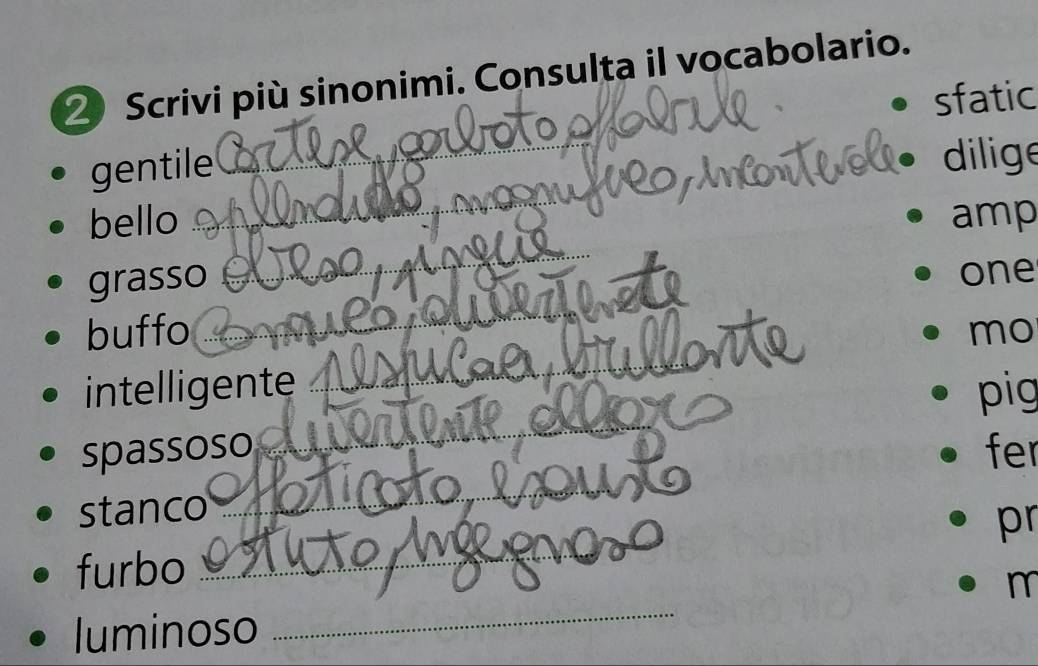 2 Scrivi più sinonimi. Consulta il vocabolario.
• gentile Cortese, garbato affabile.
• bello splendido, magnifico, incantevole
• grasso obeso, pingue
• buffo
• intelligente brillante
• spassoso divertente, allegro
• stanco affaticato, esausto
• furbo astuto, ingegnoso
• luminoso
• sfatic
• dilige
• amp
• one
• mo
• pig
• fer
• pr
• m